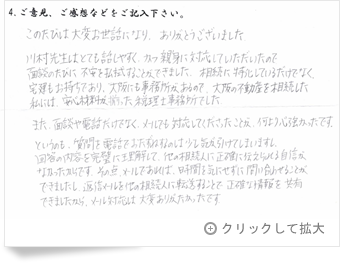 4. ご意見、ご感想などをご記入下さい。
このたびは大変お世話になり、ありがとうございました
川村先生はとても話しやすく、かつ親身に対応していただいたので
面談のたびに不安を払拭することができました。相続に特化しているだけでなく
宅建もお持ちであり、大阪にも事務所があるので、大阪の不動産を相続した
私には、安心材料が揃った税理士事務所でした。
また、面談や電話だけでなく、メールでも対応してくださったことが、何より心強かったです。
というのも、質問を電話でおたずねするのは少し気が引けてしまいますし、
回答の内容を完璧に理解して、他の相続人に正確に伝えられる自信が
なかったからです。その点、メールであれば、日時関を気にせずに問い合わせることが
できましたし、返信メールを他の相続人に転送することで、正確な情報を共有
できましたから、メール対応は大変ありがたかったです
クリックして拡大